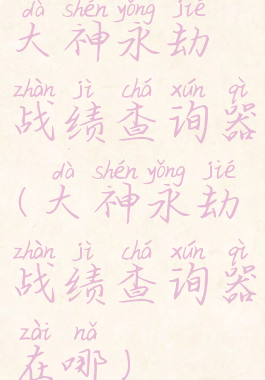 dà shén yǒng jié
大神永劫
zhàn jì chá xún qì
战绩查询器
dà shén yǒng jié
(大神永劫
zhàn jì chá xún qì
战绩查询器
zài nǎ
在哪)